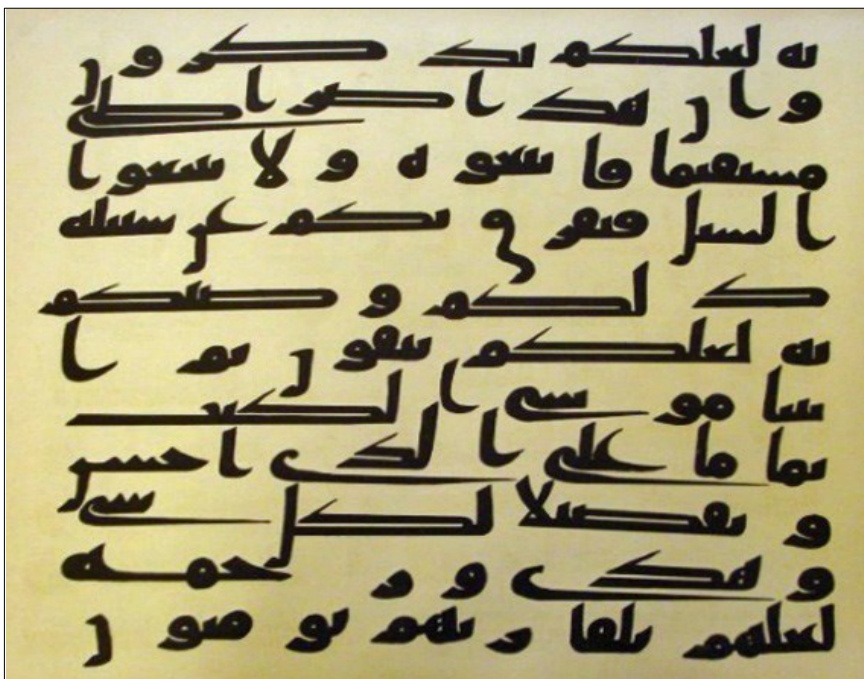 به لعلكم تذكرون
وان هذا صراطى
مستقيما فاتبعوه ولا تتبعوا
السبل فتفرق بكم عن سبيله
ذلكم وصيكم
به لعلكم تتقون ثم ا
تينا موسى الكتب
تماما على الذى احسن
وتفصيلا لكل شى
وهدى ورحمه
لعلهم بلقا ربهم يومنون